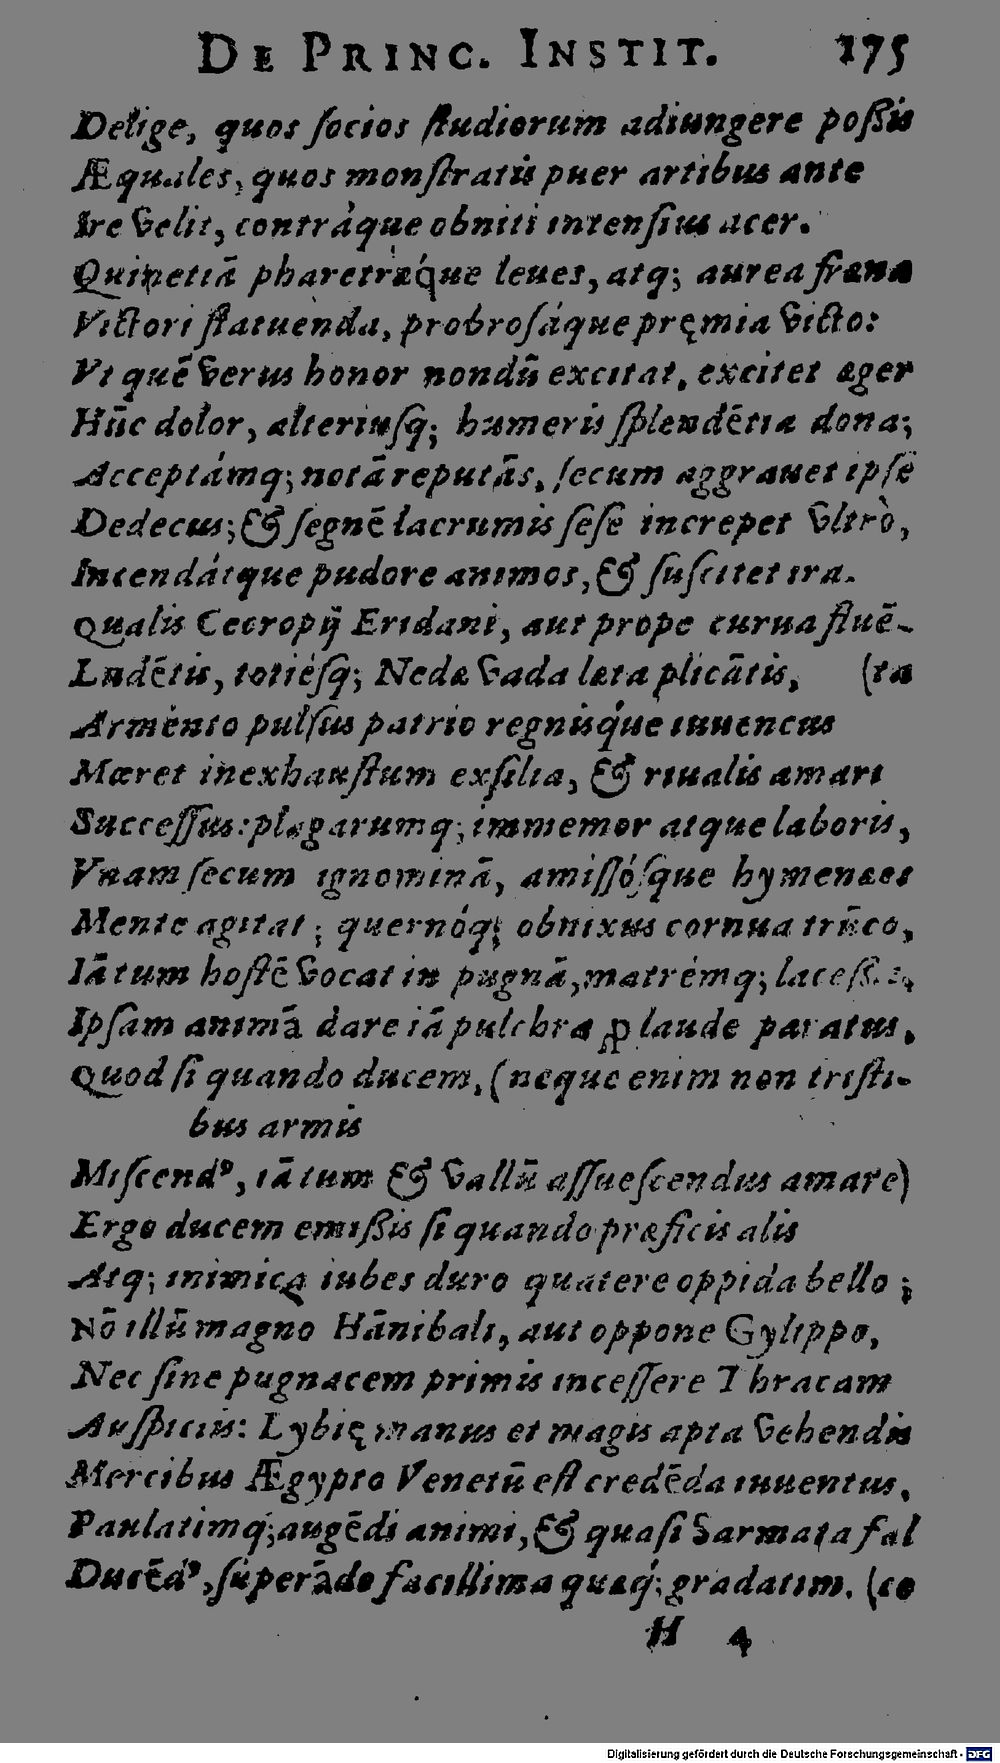 DE PRINC. INSTIT. 175
Delige, quos ſocios ſtudiorum adiungere poßis
Æquales, quos monſtratis puer artibus ante
Ire velit, contràque obniti intenſius acer.
Quinetiā pharetræq́ue leues, atq; aurea frena
Victori ſtatuenda, probroſáque pręmia victo:
Vt quē verus honor nondū excitat, excitet æger
Hūc dolor, alteriuſq; humeris ſplendētia dona;
Acceptámq; notā reputās, ſecum aggrauet ipſe
Dedecus; & ſegnē lacrumis ſeſe increpet vltrò,
Incendátque pudore animos, & ſuſcitet ira.
Qualis Cecropij Eridani, aut prope curua fluē-
Ludētis, totiéſq; Nedæ vada læta plicātis, (ta
Armento pulſus patrio regnisq́ue iuuencus
Mæret inexhauſtum exſilia, & riualis amari
Succeſſus: plagarumq; immemor atque laboris,
Vnam ſecum ignominā, amiſſóſque hymenæes
Mente agitat; quernóq; obnixus cornua trūco,
Iātum hoſtē vocat in pugnā, matrémq;
Ipſam animā dare iā pulchra ꝓ laude paratus.
Quod ſi quando ducem, (neque enim non triſti-
bus armis
Miſcendꝰ, iā tum & vallū aſſueſcendus amare)
Ergo ducem emißis ſi quando præficis alis
Atq; inimica iubes duro quatere oppida bello;
Nō illū magno Hānibali, aut oppone Gylippo,
Nec ſine pugnacem primis inceſſere Thracam
Auſpiciis: Lybię manus et magis apta vehendis
Mercibus Ægypto Venetū eſt credēda iuuentus.
Paulatimq; augēdi animi, & quaſi Sarmata fal
Ducēdꝰ, ſuperādo facillima quæq́; gradatim. (co
H 4
Digitalisierung gefördert durch die Deutsche Forschungsgemeinschaft - DFG